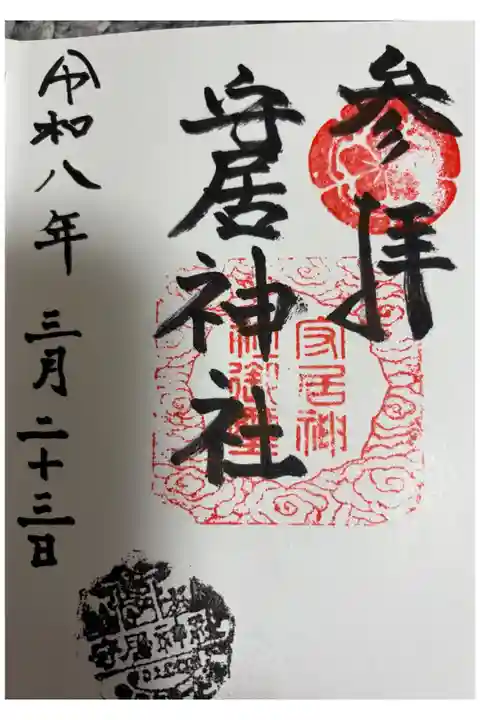 参拝
安居神社
令和八年 三月二十三日
安居神
社御璽
安居神社